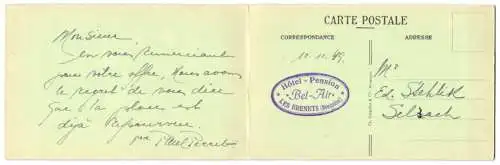 Monsieur
en vous remerciant
pour votre offre, nous avons
le regret de vous dire
que la place est
déjà repourvue.
par
CARTE POSTALE
CORRESPONDANCE
ADRESSE
10.10.49.
Hôtel - Pension
"Bel-Air"
LES BRENETS (Neuchâtel)
Mr
Ed.
Selzach